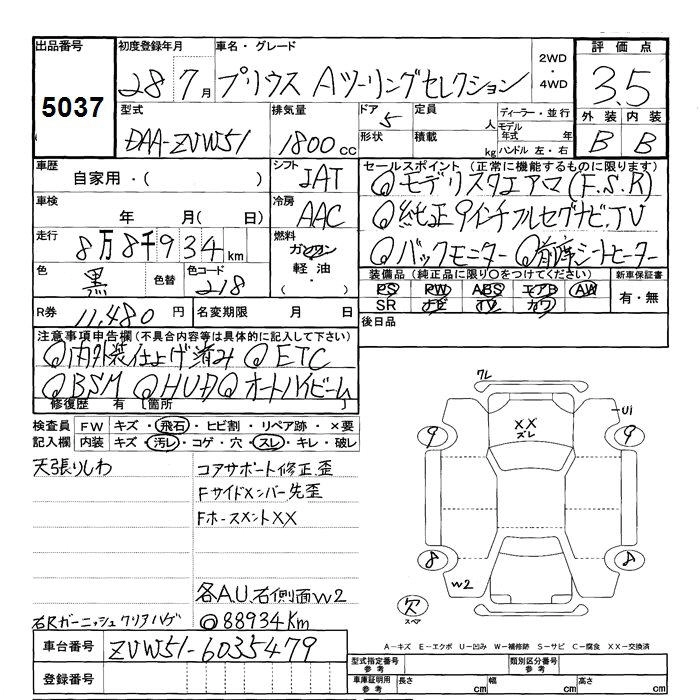 出品番号 初度登録年月 車名・グレード 2WD ・ 4WD 評価点
5037 28 7月 プリウス Aツーリングセレクション 3.5
型式 排気量 ドア 定員 人 ディーラー・並行 外装 内装
DAA-ZVW51 1800cc 5 形状 積載 kg モデル年式 年 ハンドル 左・右 B B
車歴 自家用・( ) シフト IAT セールスポイント (正常に機能するものに限ります)
◎モデリスタエアロ(F.S.R)
車検 年 月( 日) 冷房 AAC ◎純正9インチフルセグナビ.TV
走行 8万8千934km 燃料 ガソリン 軽油 ・( ) ◎バックモニター ◎前席シートヒーター
色 黒 色替 色コード 218 装備品(純正品に限り○をつけてください) 新車保証書
PS PW ABS エアB AW 有・無
SR ナビ TV カワ
R券 11,480円 名変期限 月 日 後日品
注意事項申告欄(不具合内容等は具体的に記入して下さい)
◎内外装仕上げ済み ◎ETC
◎BSM ◎HUD ◎オートハイビーム
修復歴 有 [箇所
検査員 FW キズ・飛石・ヒビ割・リペア跡・×要
記入欄 内装 キズ・汚レ・コゲ・穴・スレ・キレ・破レ
天張りしわ コアサポート修正.歪
Fサイドメンバー先歪
FホースメントXX
各A.U.右側面W2
右Rガーニッシュクリアハゲ ◎88934Km
ワレ
XX
ズレ
U1
9 9
8 8
W2
欠
スペア
A-キズ E-エクボ U-凹み W-補修跡 S-サビ C-腐食 XX-交換済
車台番号 ZVW51-6035479
登録番号
型式指定番号 参考 類別区分番号 参考
車庫証明用 参考 長さ cm 幅 cm 高さ cm